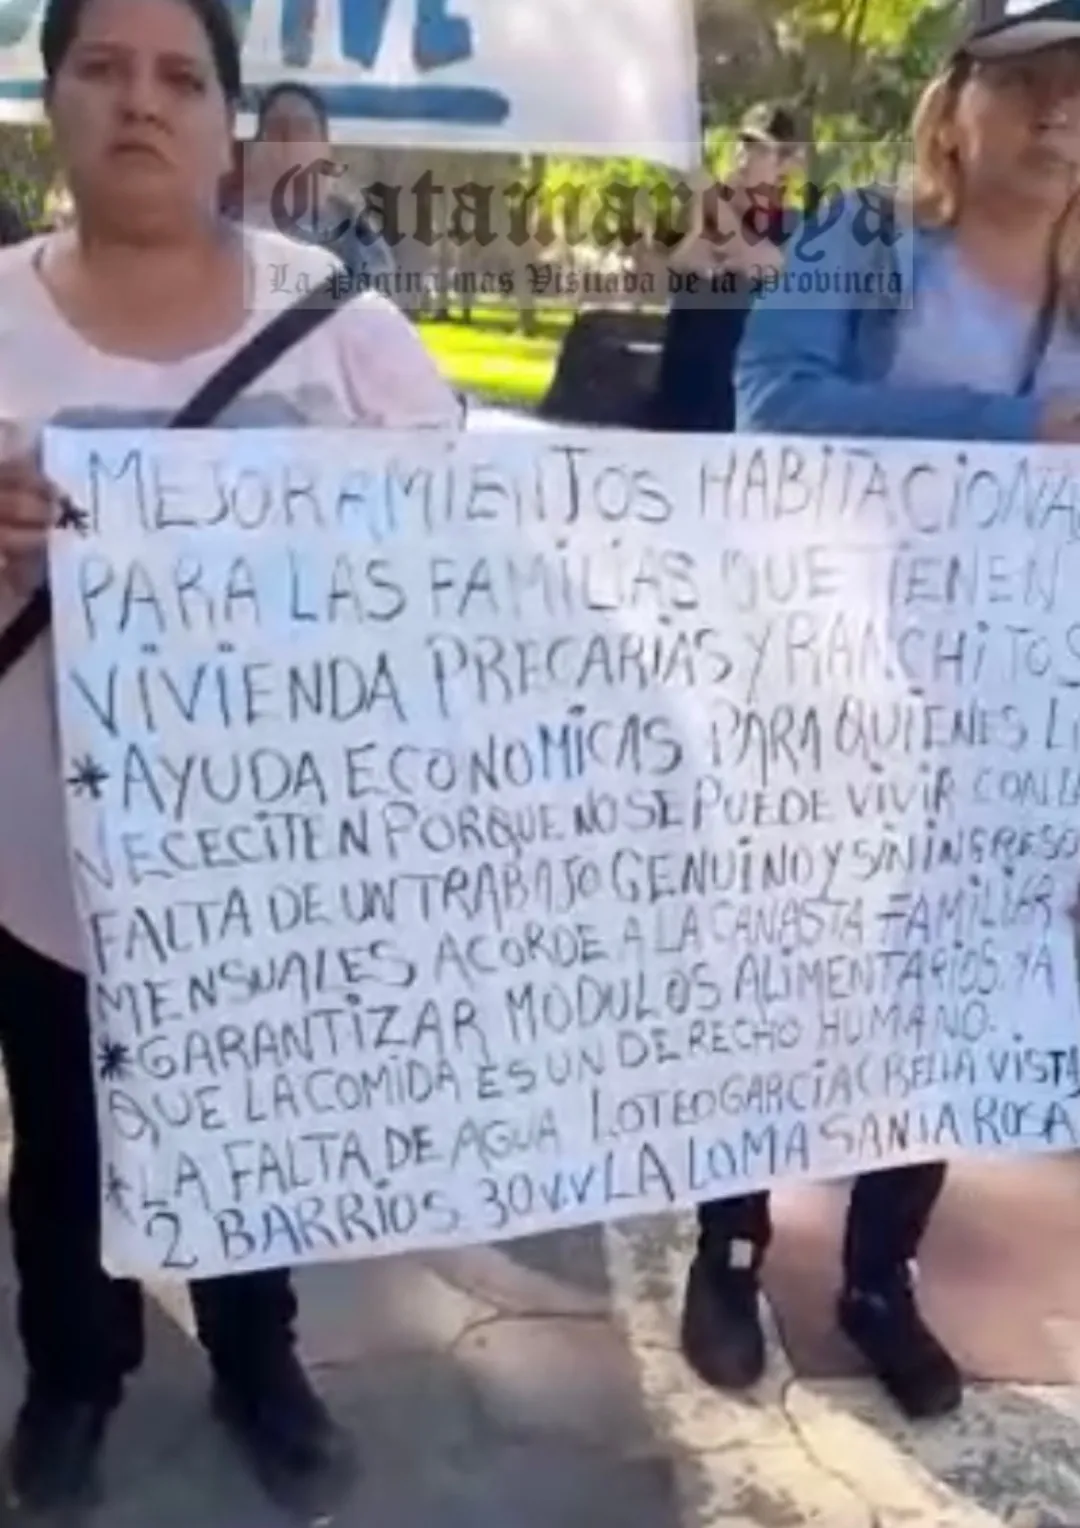 Catamarcaya
La Página mas Visitada de la Provincia
*MEJORAMIENTOS HABITACIONA
PARA LAS FAMILIAS QUE TIENEN
VIVIENDA PRECARIAS Y RANCHITOS
*AYUDA ECONOMICAS PARA QUIENES
NECECITEN PORQUE NO SE PUEDE VIVIR CON LA
FALTA DE UN TRABAJO GENUINO Y SIN INGRESO
MENSUALES ACORDE A LA CANASTA FAMILIAR
*GARANTIZAR MODULOS ALIMENTARIOS. YA
QUE LA COMIDA ES UN DERECHO HUMANO.
*LA FALTA DE AGUA LOTEO GARCIA (BELLA VISTA
2 BARRIOS 30 V.V LA LOMA SANTA ROSA